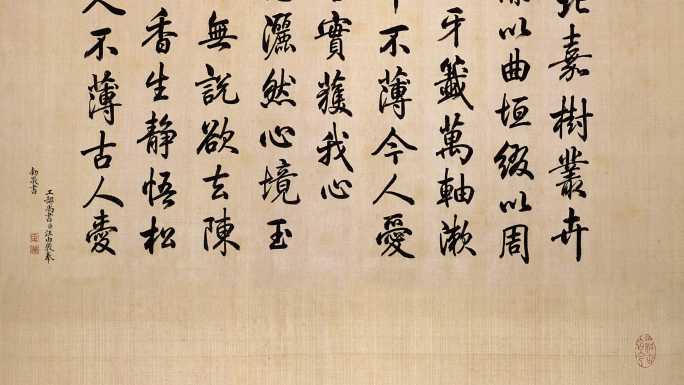 嘉樹叢卉
以曲垣綴以周
牙籤萬軸漱
不薄今人愛
實獲我心
灑然心境玉
無說欲去陳
香生靜悟松
人不薄古人愛
工部尚書臣汪由敦奉
勅敬書